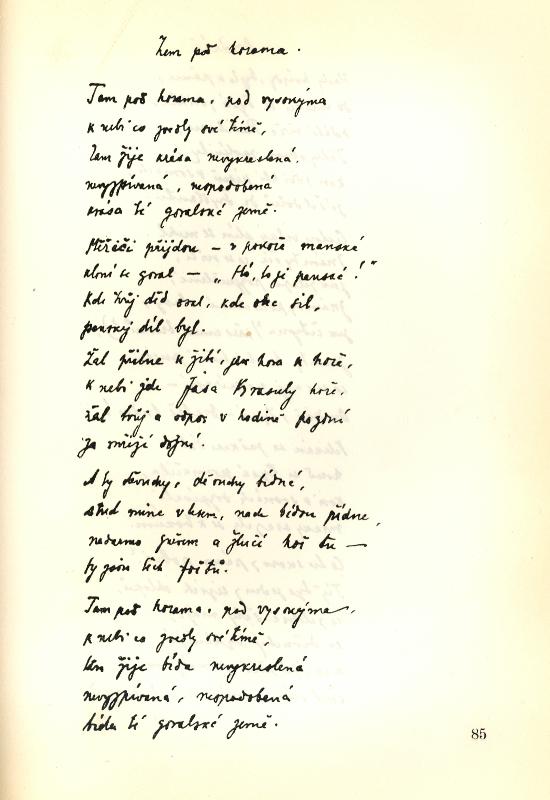 Zem pod horama.
Tam pod horama, pod vysonýma
k nebi co zvedly své týmě,
tam žije krása nevykreslená,
nevyzpívaná, nespodobená
krása té goralské země.
Měřiči přijdou — v pokoře manské
kloní se goral — „Há, to je panské!"
Kde tvůj děd oral, kde otec sil,
panský díl byl.
Žal přilne k žití, jak hora k hoře,
k nebi jde Jasa Krasuly hoře,
žal tvůj a odpor v hodině pozdní
za mříží dozní.
A ty děvuchy, děvuchy bídné,
stud mine vkrtu, nade bídou
nadarmo hněvem a žlučí hoř tu —
ty jsou těch fojtů.
Tam pod horama, pod vysokýma,
k nebi co zvedly své týmě,
tam žije bída nevykreslená
nevyzpívaná, nespodobená
bída té goralské země.
85